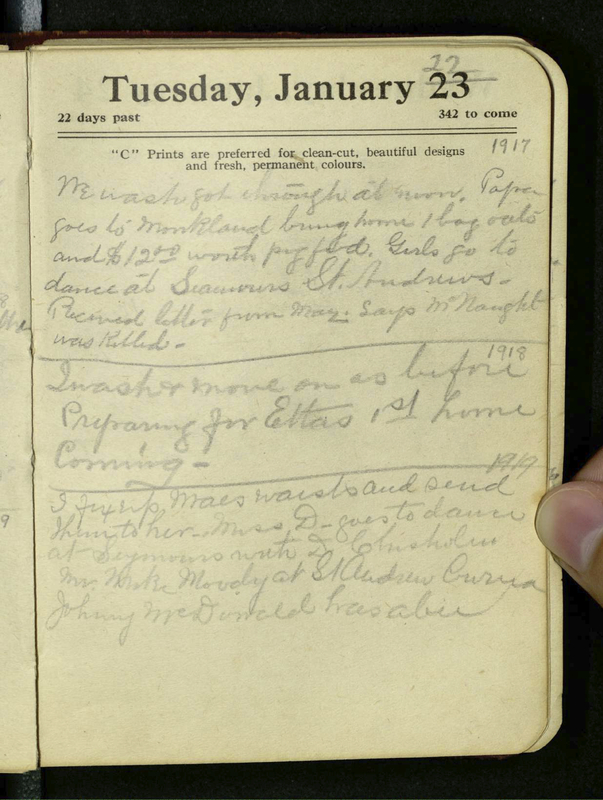 22
Tuesday, January 23
22 days past 342 to come
"C" Prints are preferred for clean-cut, beautiful designs
and fresh, permanent colours.
1917
We wash got through at noon. Papa
goes to Monkland bring home 1 bag oats
and $12.00 worth pig feed. Girls go to
dance at Seamours St. Andrews -
Received letter from May. Says McNaught
was killed -
1918
I wash & move on as before
Preparing for Ettas 1st home
Coming -
1919
I fix up Maes waists and send
them to her - Miss D - goes to dance
at Seymours with D Chisholm
Mr. Mike Moody at St Andrew
Johnny McDonald has a